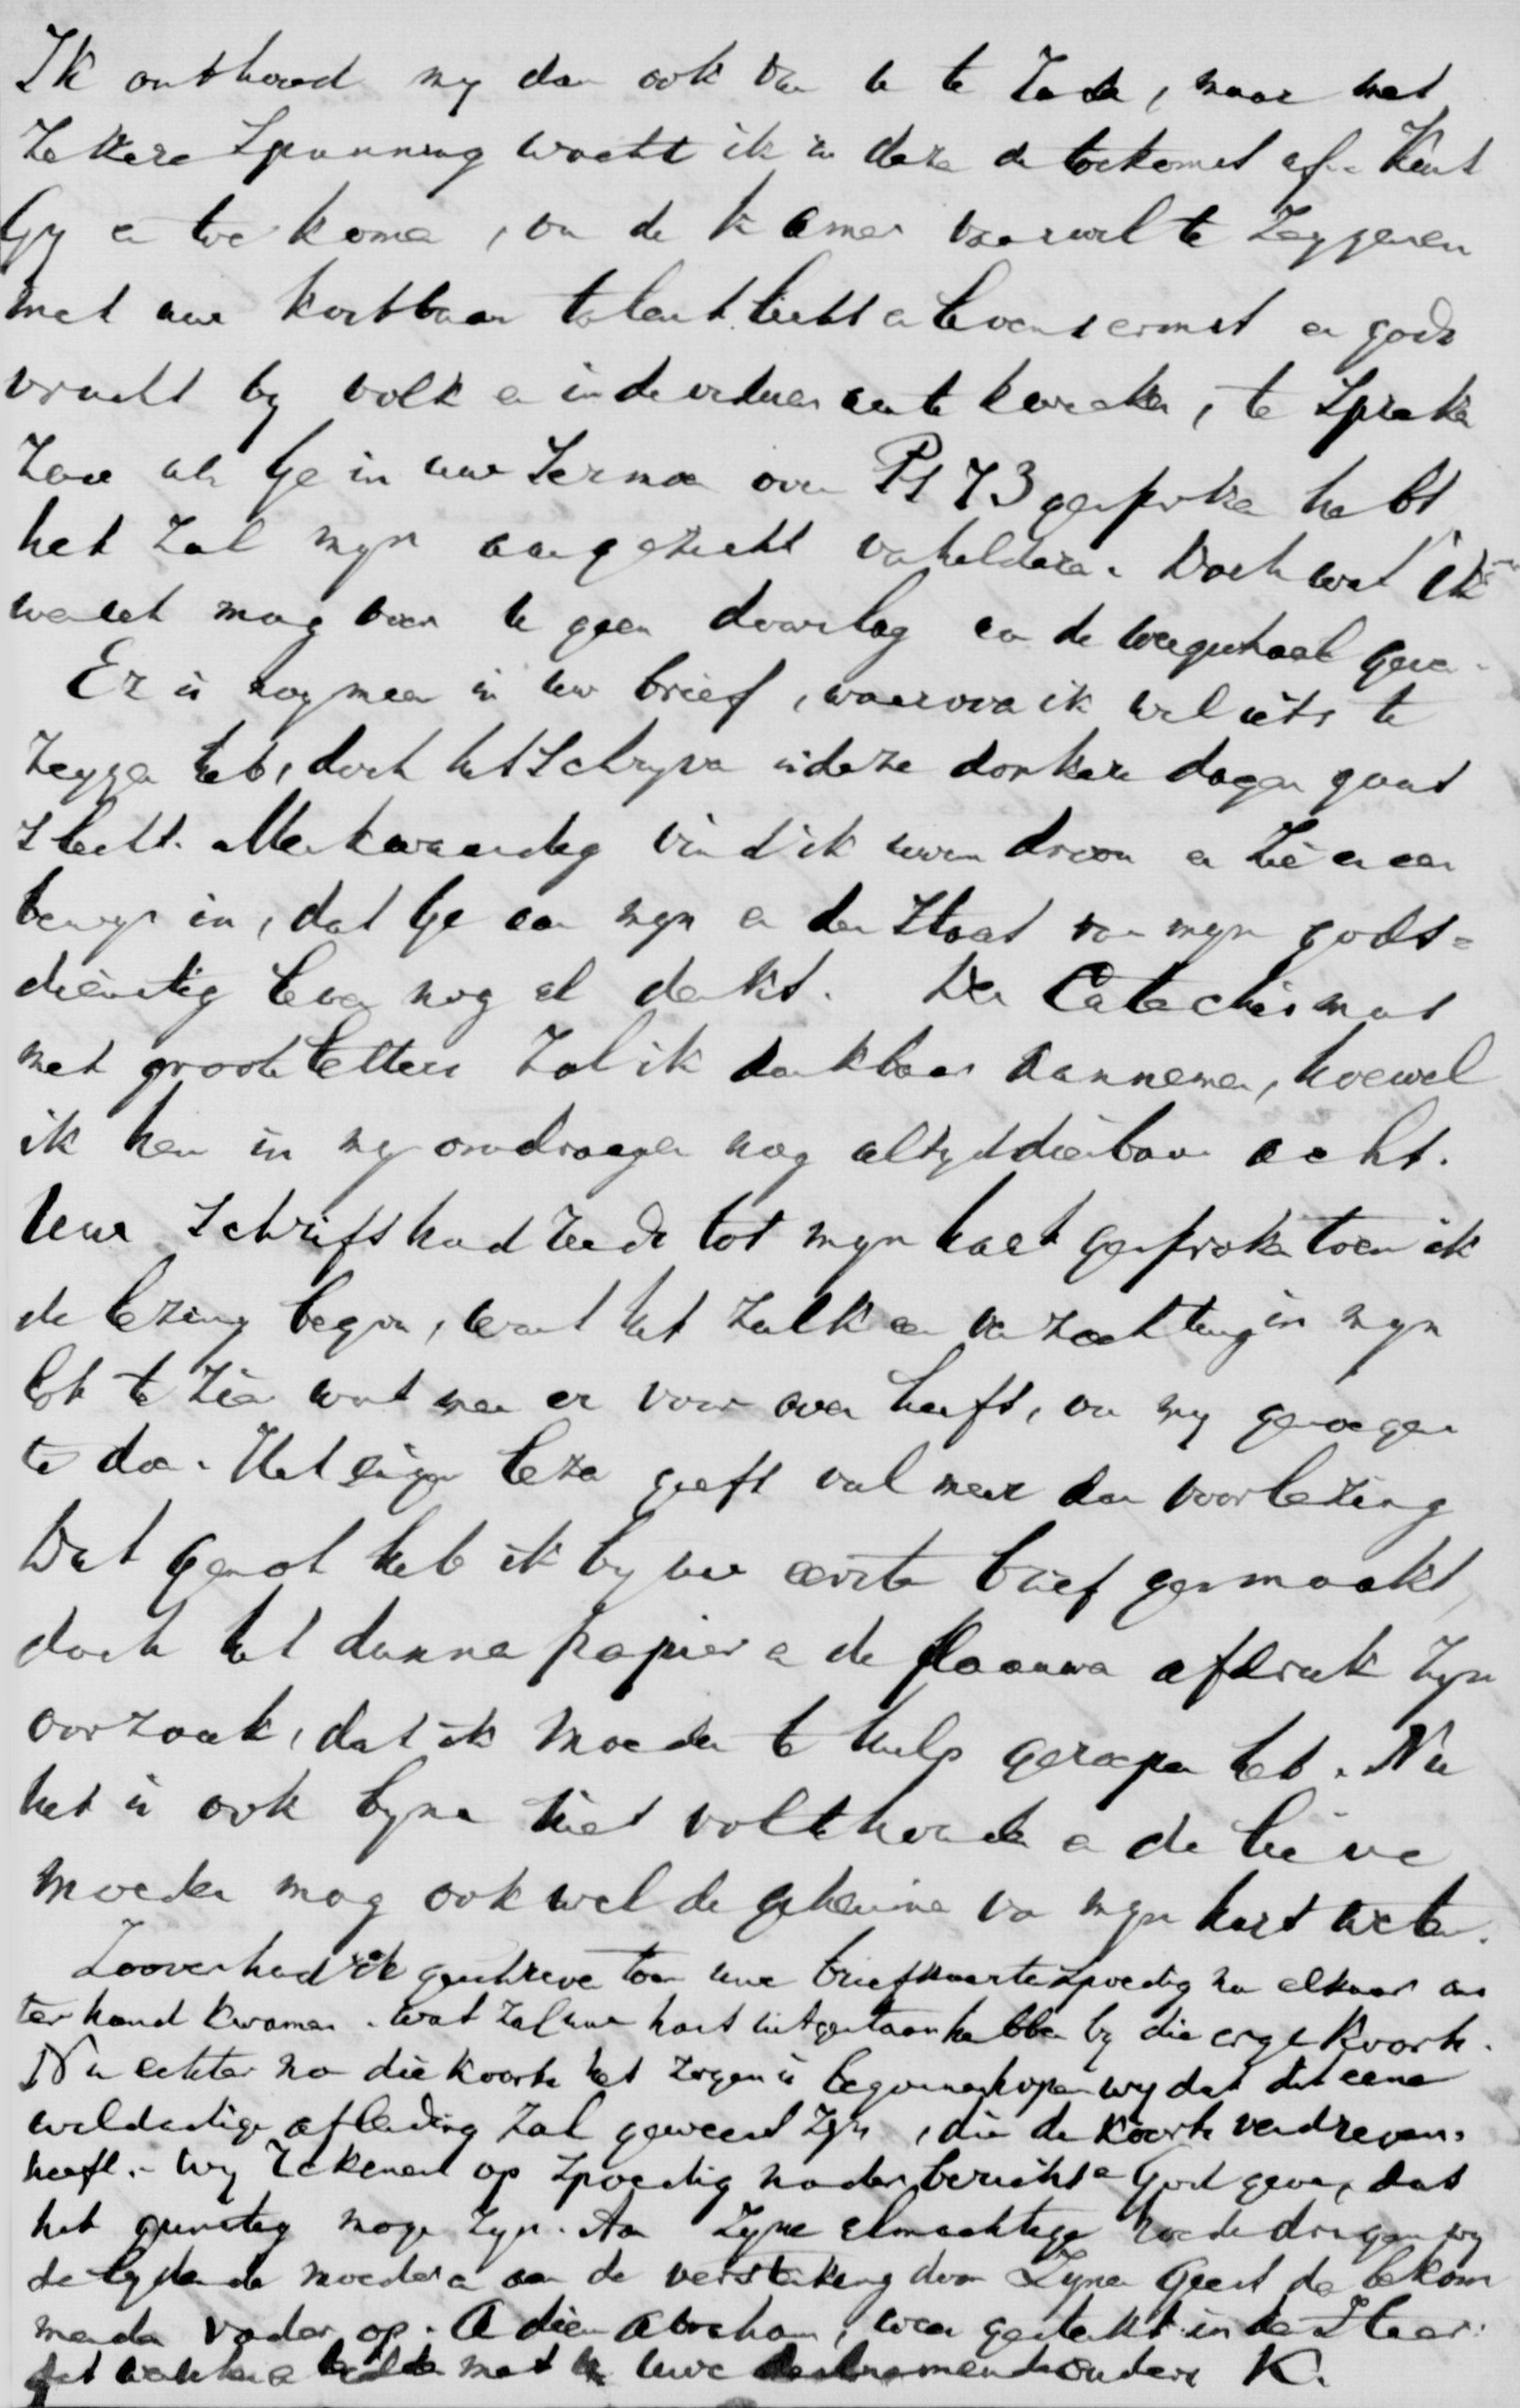 Ik onthoud my dan ook van U te raden, maar met
zekere spanning wacht ik in deze de toekomst af. Kunt
Gy er toe komen, om de kamer vaarwel te zeggen en
met uw kostbaar talent liefst levensernst en gods
vrucht by volk en individuen aan te kweeken, te spreken
zoo als Ge in uwe Sermoen over Ps 73 gesproken hebt
het zal myn aangezicht verhelderen. Doch wat ik
wensch mag voor U geen doorslag aan de weegschaal geven.
Er is nog meer in uw brief, waarvan ik wel iets te
zeggen heb, doch het schryven in deze donkere dagen gaat
slecht. Merkwaardig vind ik uwen droom en zie er een
bewys in, dat Ge aan myn en den staat van myn gods=
dienstig leven nog al denkt. Den Catechismus
met groote letters zal ik dankbaar aannemen, hoewel
ik hem in my omdragen nog altyd dierbaar acht.
Uwe schrift had reeds tot myn hart gesproken toen ik
de lezing begon, want het zulk een verzachting in myn
lot te zien wat men er voor over heeft, om my genoegen
te doen. Het eigen lezen geeft veel meer dan voorlezing
Wat genot heb ik by uw eerste brief gesmaakt,
doch het dunne papier en de flaauwe afdruk zyn
oorzaak, dat ik Moeder te hulp geroepen heb. Nu
het is ook byna niet vol te houden en de lieve
Moeder mag ook wel de geheimen van myn hart weten.
Zoover had ik geschreven toen uwe briefkaarten spoedig na elkaar ons
ter hand kwamen. Wat zal uw hart uitgestaan hebben by die erge koorts.
Nu echter na die koorts het zogen is begonnen hopen wy dat dit eene
weldadige afleiding zal geweest zyn, die de koorts verdreven
heeft. Wy rekenen op spoedig nader bericht en God geve, dat
het gunstig moge zyn. Aan Zyne almachtige hoede dragen wy
de lydende moeder en aan de versterking door Zynen Geest de bekom
merde vader op. Adieu Abraham, wees gesterkt in den Heer.
met uwe deelnemende ouders K.